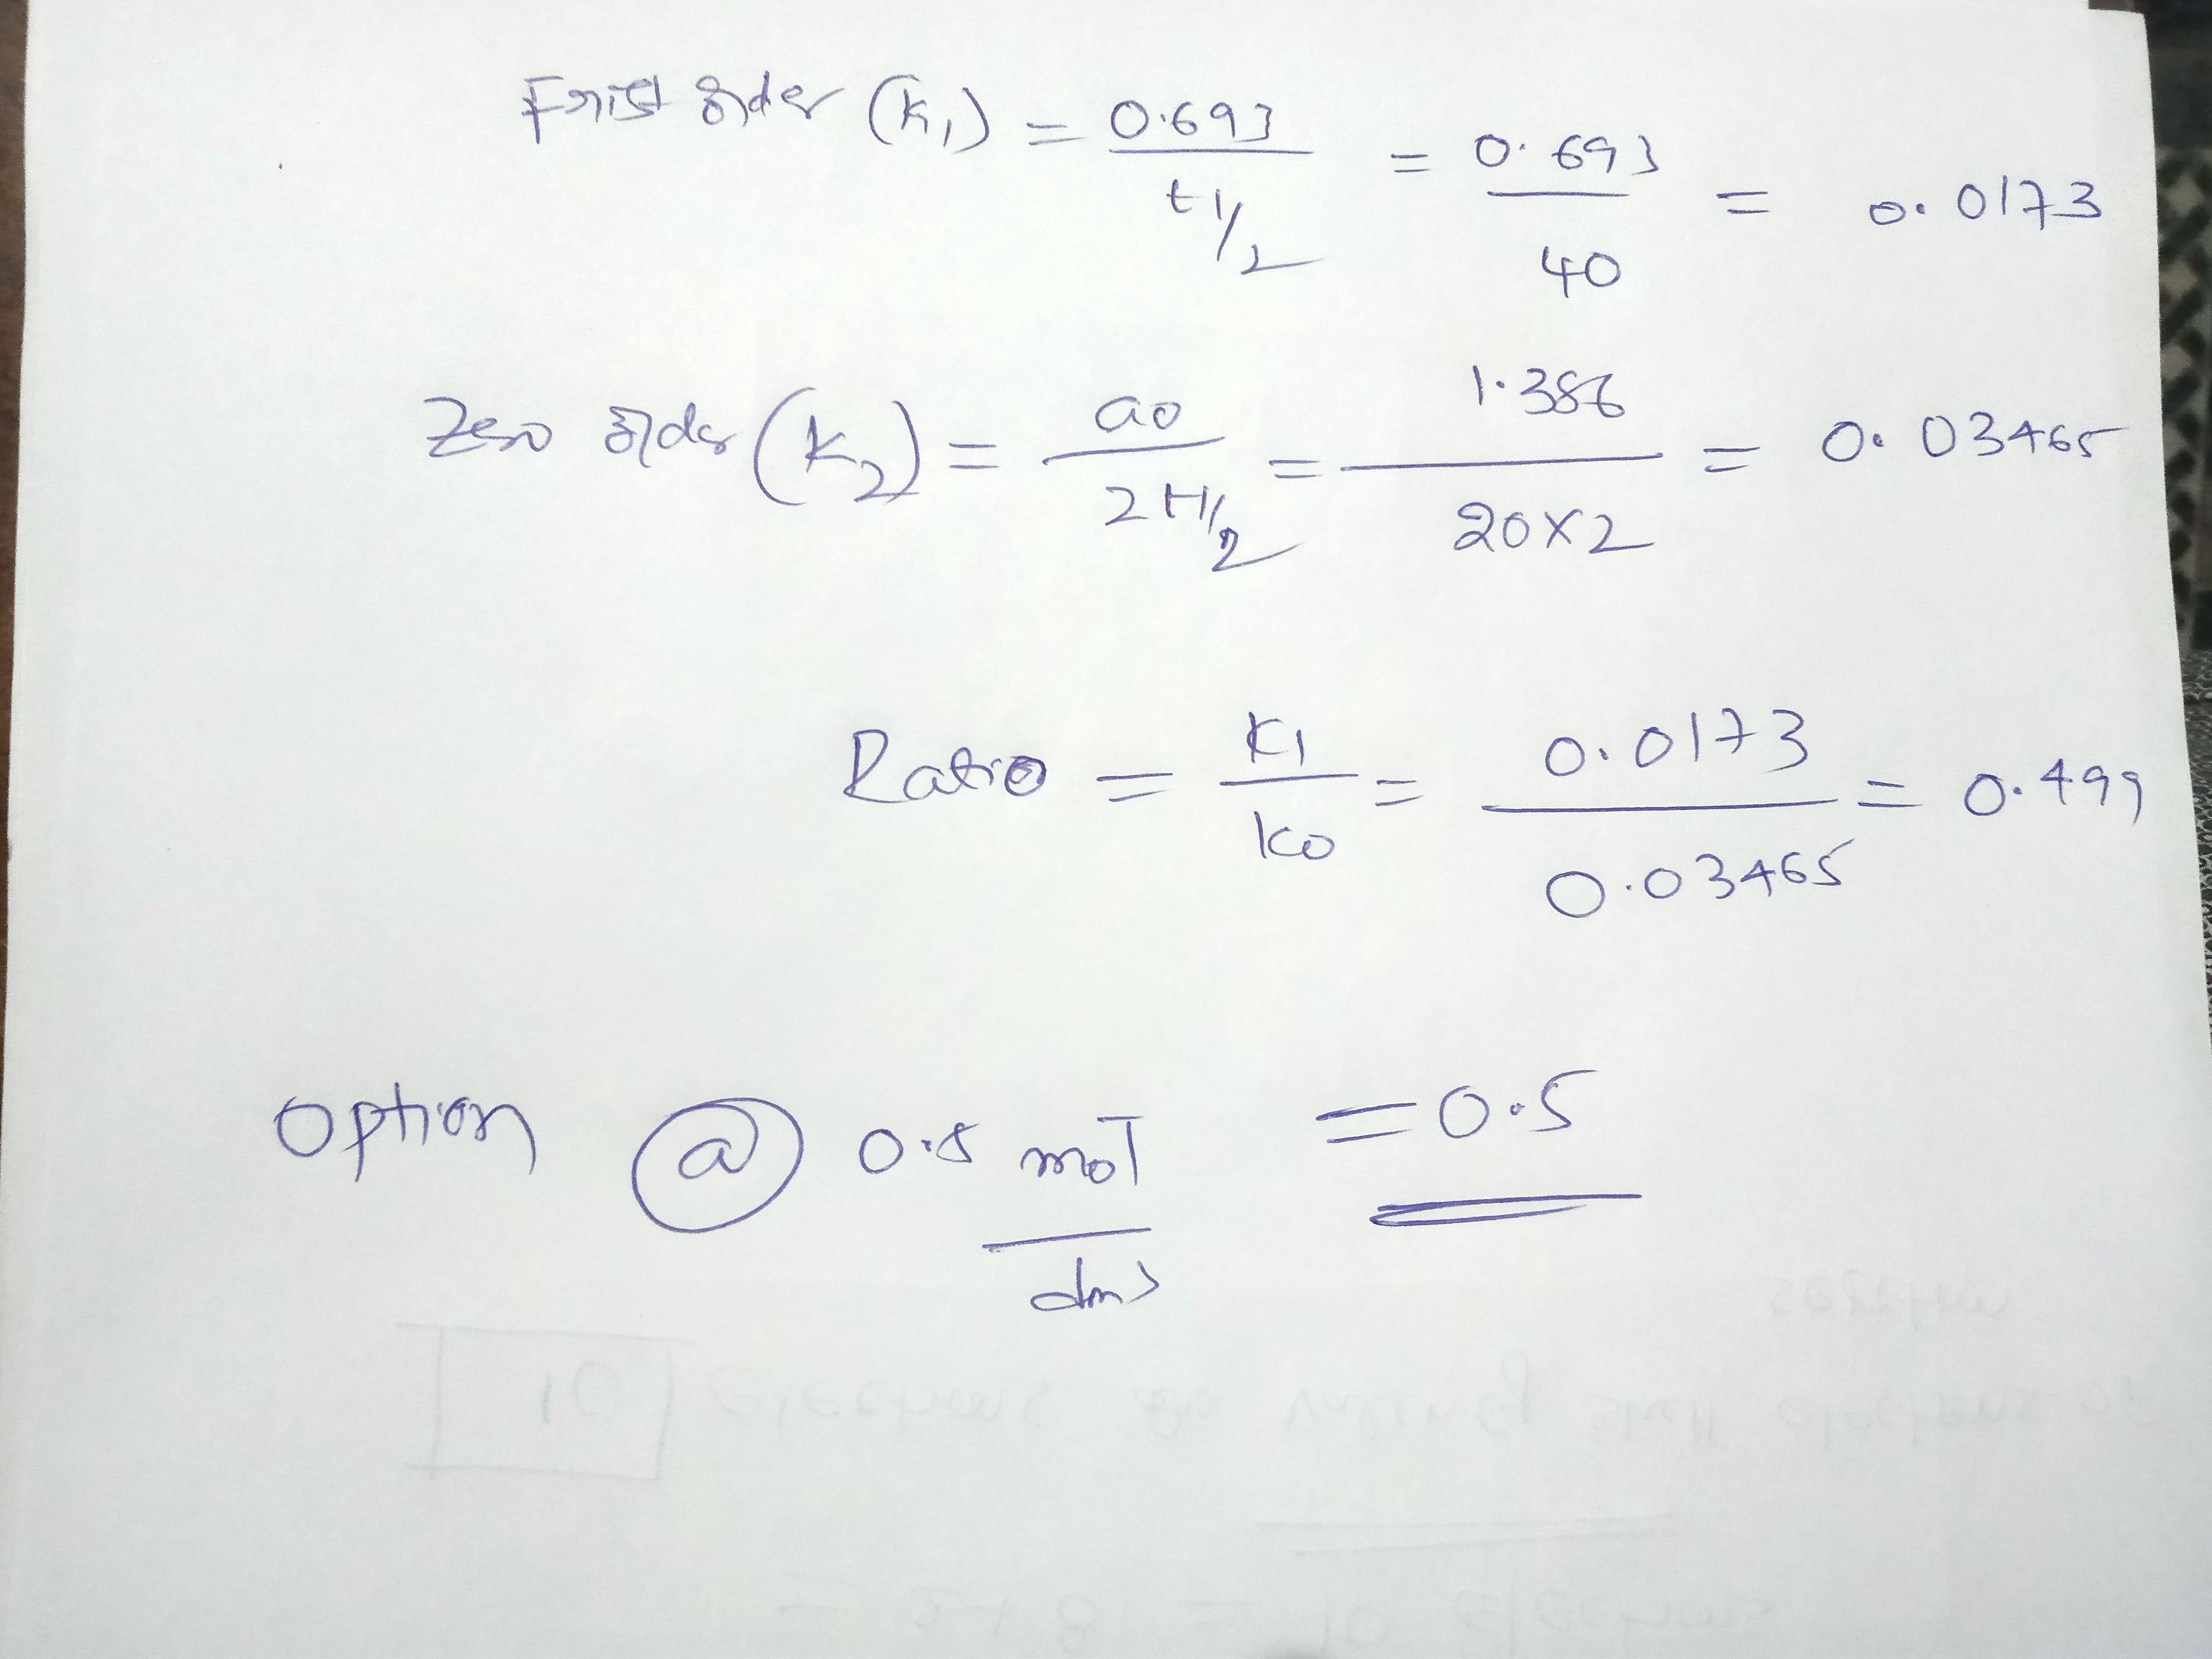 First order (K₁) = 0.693 / t 1/2 = 0.693 / 40 = 0.0173
Zero order (K₂) = a0 / 2 t1/2 = 1.386 / 20X2 = 0.03465
Ratio = K1 / K0 = 0.0173 / 0.03465 = 0.499
Option (a) 0.5 mol / dm3 = 0.5